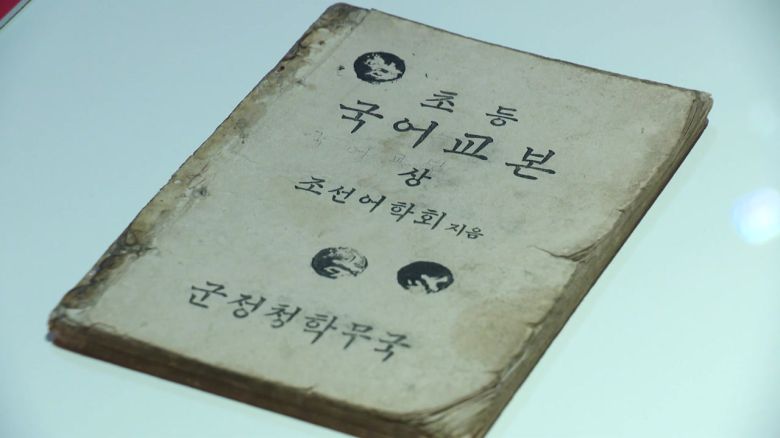 초등
국어교본
장
조선어학회 지음
군정청학무국